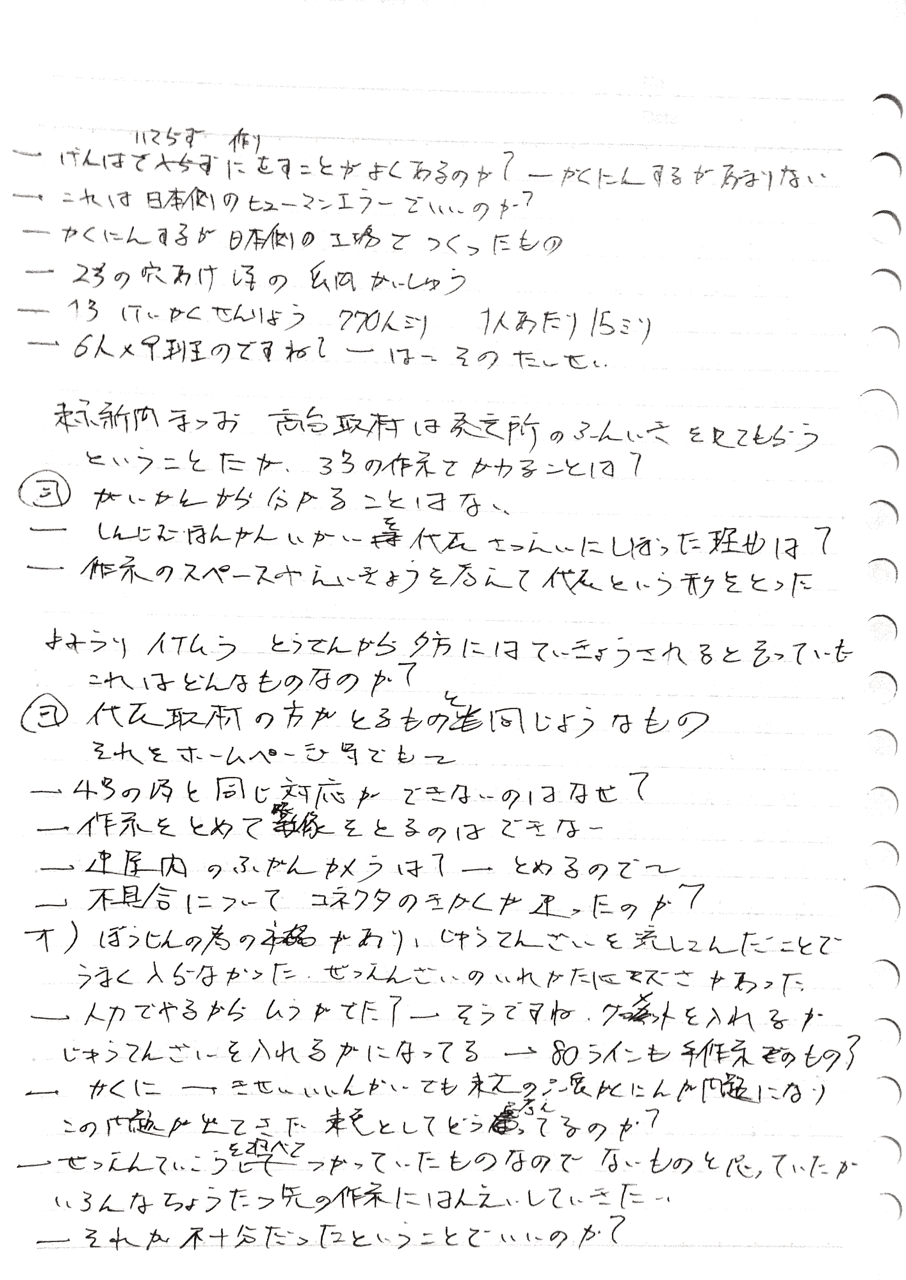 いてらす 作り
一 げんばでにをすことがよくあるのか? 一 かくにんするがあまりない
一 これは日本側のヒューマンエラーでいいのか?
一 かくにんするが日本側の工場でつくったもの
一 2号の穴あけ 後の 内 かいしゅう
一 13 けいかくせんりょう 770人ミリ 1人あたり15ミリ
一 6人×9班のですね? 一 はー そのたいせい
新聞まつお 高台取材は発電所のふんいきを見てもらう
ということだが、3号の作業でかわることは?
三 がいかんから分かることはない
一 しんじむほんかんいがいを代表さつえいにしぼった理由は?
一 作業のスペースやえいきょうを考えて代表という形をとった
よみうり イムラ とうでんから夕方にはていきょうされると言っていた
これはどんなものなのか?
三 代表取材の方がとるものと同じようなもの
それをホームページ等でも〜
一 4号の時と同じ対応ができないのはなぜ?
一 作業をとめて映像をとるのはできなー
一 建屋内のふかんカメラは? 一 とめるので〜
一 不具合について コネクタのきかくが違ったのか?
オ) ぼうじんの為のがあり、じゅうてんざいを流しこんだことで
うまく入らなかった、ぜつえんざいのいれかたにまずさがあった
一 人力でやるからムラがでた? 一 そうですね、ケットを入れるか
じゅうてんざいを入れるかになってる → 80ラインも手作業のもの?
一 かくに 一 きせいいいんかいでも東電のかくにんが問題になり
この問題が出てきた 東電としてどう考えてるのか?
一 ぜつえんていこうを調べてつかっていたものなのでないものと思っていたが
いろんなちょうたつ先の作業にはんえいしていきたい
一 それが不十分だったということでいいのか?